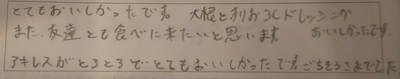 とてもおいしかったです。 大根と利おろしドレッシングが
また、友達とも食べに来たいと思います。 おいしかったです。
アキレスがとろとろでとてもおいしかったです。ごちそうさまでした